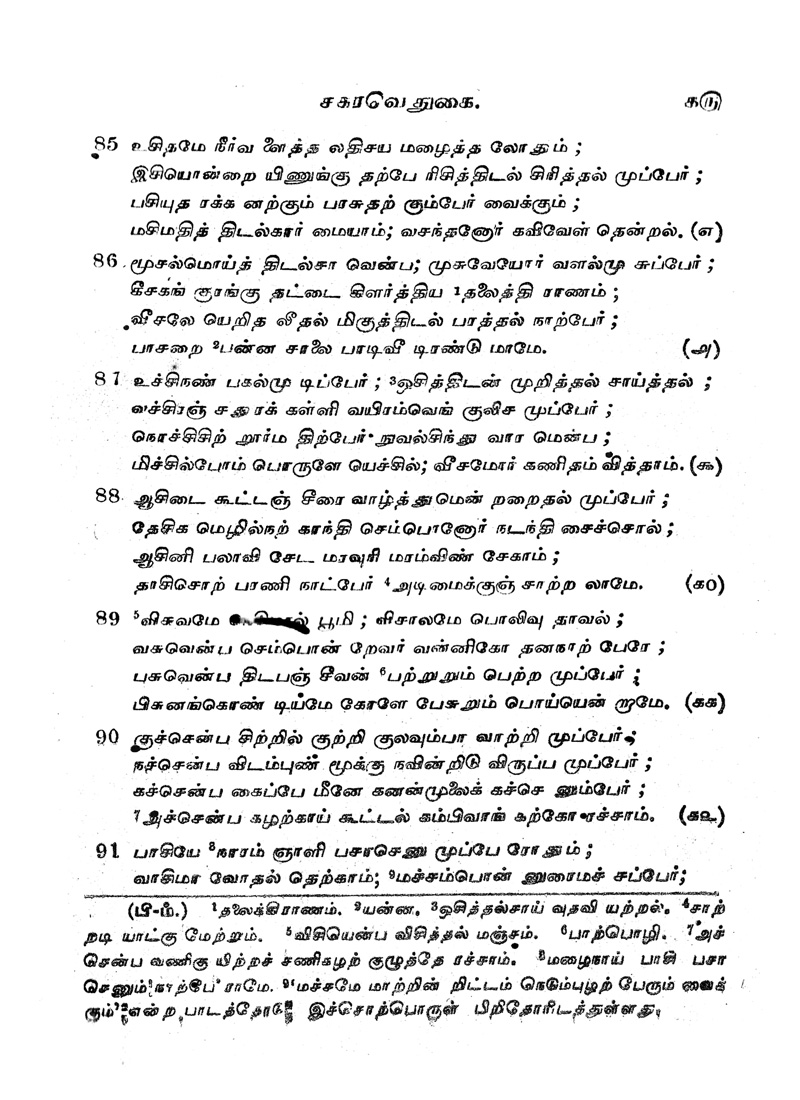 சகரவெதுகை. க௫
85 உசிதமே நீர்வ ளைத்த லதிசய மழைத்த லோதும் ;
இசியொன்றை யிணுங்கு தற்பே ரிசித்திடல் சிரித்தல் முப்பேர் ;
பசியுத ரக்க னற்கும் பாசுதற் கும்பேர் வைக்கும் ;
மசிமதித் திடல்கார் மையாம்; வசந்தனோர் கவிவேள் தென்றல். (எ)
86 மூசல்மொய்த் திடல்சா வென்ப; முசுவேயோர் வளல்மு சுப்பேர் ;
கீசகங் குரங்கு தட்டை கிளர்த்திய 1தலைத்தி ராணம் ;
வீசலே யெறித லீதல் மிகுத்திடல் பாத்தல் நாற்பேர் ;
பாசறை 2பண்ண சாலை பாடிவீ டிரண்டு மாமே. (அ)
87 உச்சிநண் பகல்மு டிப்பேர் ; 3ஒசித்திடன் முறித்தல் சாய்த்தல் ;
வச்சிரஞ் சதுரக் கள்ளி வயிரம்வெங் குலிச முப்பேர் ;
நொச்சிசிற் றூர்ம திற்பேர் நுவல்சிந்து வார மென்ப ;
மிச்சில்போம் பொருளே யெச்சில்; வீசமோர் கணிதம் வித்தாம். (௯)
88 ஆசிடை கூட்டஞ் சீரை வாழ்த்துமென் றறைதல் முப்பேர் ;
தேசிக மெழில்நற் காந்தி செம்பொனோர் நடந்தி சைச்சொல் ;
ஆசினி பலாவி சேட மரவுரி மரம்விண் சேகாம் ;
தாசிசொற் பரணி நாட்பேர் 4அடிமைக்குஞ் சாற்ற லாமே. (க௦)
89 5விசுவமே பூமி ; விசாலமே பொலிவு தாவல் ;
வசுவென்ப செம்பொன் றேவர் வன்னிகோ தனநாற் பேரே ;
புசுவென்ப திடபஞ் சீவன் 6பற்றுறும் பெற்ற முப்பேர் ;
பிசுனங்கொண் டிய்மே கோளே பேசுறும் பொய்யென் றாமே. (கக)
90 குச்சென்ப சிற்றில் குற்றி குலவும்பா வாற்றி முப்பேர் ;
நச்சென்ப விடம்புண் மூக்கு நவின்றிடு விருப்ப முப்பேர் ;
கச்சென்ப கைப்பே மீனே கனன்முலைக் கச்செ னும்பேர் ;
7அச்சென்ப கழற்காய் கூட்டல் கம்பிவாங் கற்கோ ரச்சாம். (க௨)
91 பாசியே 8நாரம் ஞாளி பசாசெனு முப்பே ரோதும் ;
வாசிமா வோதல் தெற்காம்; 9மச்சம்பொன் னுரைமச் சப்பேர்;
(பி-ம்.) 1தலைக்கிராணம். 2யன்ன. 3ஒசித்தல்சாய் வுதவி யற்றல். 4சாற்
றடி யாட்கு மேற்றும். 5விசியென்ப விசித்தல் மஞ்சம். 6பாற்பொழி. 7அச்
சென்ப வணிகு யிற்றச் சணிகழற் குழுத்தே ரச்சாம். 8மழைநாய் பாசி பசா
செனும் நாற்பே ராமே. 9'மச்சமே மாற்றின் றிட்டம் நெடும்புழற் பேரும் வைக்
கும்' என்ற பாடத்தோடு இச்சொற்பொருள் பிறிதோரிடத்துள்ளது.